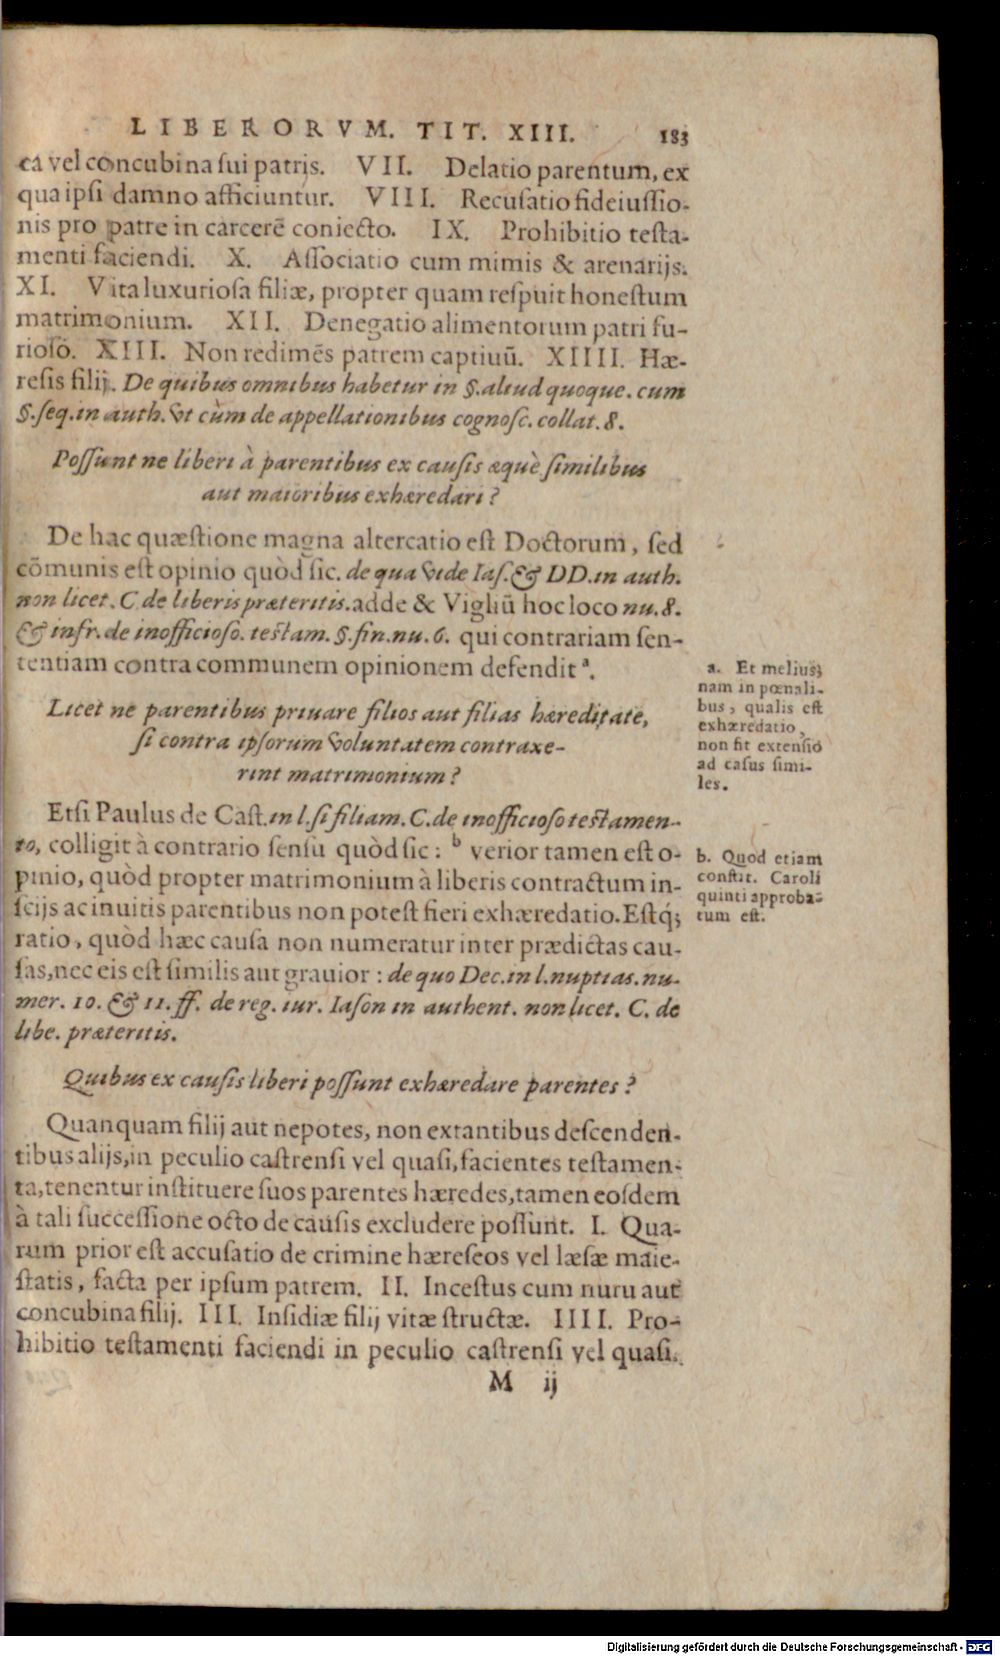 LIBERORVM. TIT. XIII. 183
ca vel concubina sui patris. VII. Delatio parentum, ex
qua ipsi damno afficiuntur. VIII. Recusatio fideiussio-
nis pro patre in carcerē coniecto. IX. Prohibitio testa-
menti faciendi. X. Associatio cum mimis & arenarijs.
XI. Vita luxuriosa filiæ, propter quam respuit honestum
matrimonium. XII. Denegatio alimentorum patri fu-
rioso. XIII. Non redimēs patrem captiuū. XIIII. Hæ-
resis filij. De quibus omnibus habetur in §. aliud quoque. cum
§. seq. in auth. vt cùm de appellationibus cognosc. collat. 8.
Possunt ne liberi à parentibus ex causis æquè similibus
aut maioribus exhæredari?
De hac quæstione magna altercatio est Doctorum, sed
cōmunis est opinio quòd sic. de qua vide Ias. & DD. in auth.
non licet. C. de liberis præteritis. adde & Vigliū hoc loco nu. 8.
& infr. de inofficioso. testam. §. fin. nu. 6. qui contrariam sen-
tentiam contra communem opinionem defendit ª.
a. Et melius;
nam in pœnali-
bus, qualis est
exhæredatio,
non fit extensio
ad casus simi-
les.
Licet ne parentibus priuare filios aut filias hæreditate,
si contra ipsorum voluntatem contraxe-
rint matrimonium?
Etsi Paulus de Cast. in l. si filiam. C. de inofficioso testamen-
to, colligit à contrario sensu quòd sic: ᵇ verior tamen est o-
pinio, quòd propter matrimonium à liberis contractum in-
scijs ac inuitis parentibus non potest fieri exhæredatio. Estq́;
ratio, quòd hæc causa non numeratur inter prædictas cau-
sas, nec eis est similis aut grauior: de quo Dec. in l. nuptias. nu-
mer. 10. & 11. ff. de reg. iur. Iason in authent. non licet. C. de
libe. præteritis.
b. Quod etiam
constit. Caroli
quinti approba-
tum est.
Quibus ex causis liberi possunt exhæredare parentes?
Quanquam filij aut nepotes, non extantibus descenden-
tibus alijs, in peculio castrensi vel quasi, facientes testamen-
ta, tenentur instituere suos parentes hæredes, tamen eosdem
à tali successione octo de causis excludere possunt. I. Qua-
rum prior est accusatio de crimine hæreseos vel læsæ maie-
statis, facta per ipsum patrem. II. Incestus cum nuru aut
concubina filij. III. Insidiæ filij vitæ structæ. IIII. Pro-
hibitio testamenti faciendi in peculio castrensi vel quasi.
M ij
Digitalisierung gefördert durch die Deutsche Forschungsgemeinschaft - DFG